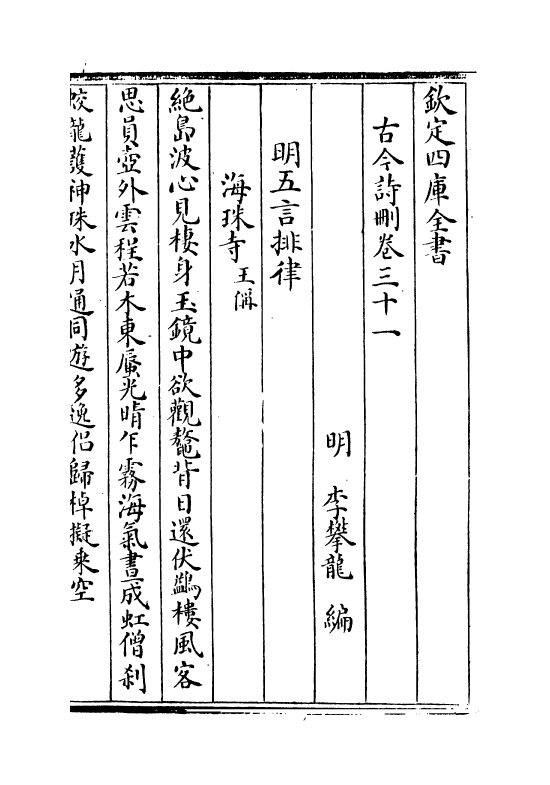 欽定四庫全書
古今詩刪卷三十一
明 李攀龍 編
明五言排律
海珠寺 王偁
絶島波心見棲身玉鏡中欲觀鼇背日還伏鷁樓風客
思員壺外雲程若木東蜃光晴乍霧海氣晝成虹僧刹
蛟龍護神珠水月通同遊多逸侣歸棹擬乗空